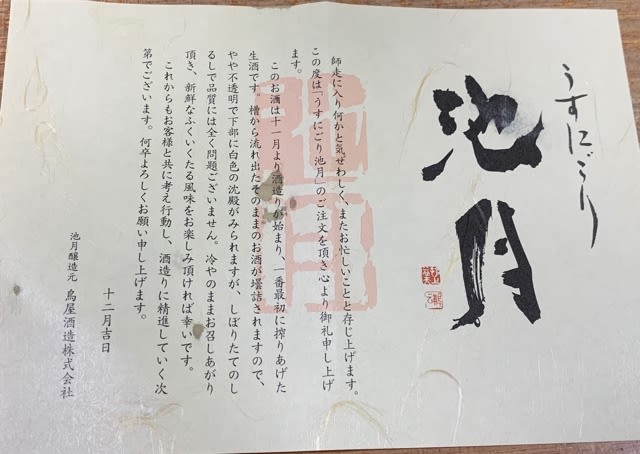 うすにごり
池月
師走に入り何かと気ぜわしく、またお忙しいことと存じ上げます。
この度は「うすにごり池月」のご注文を頂き心より御礼申し上げ
ます。
このお酒は十一月より酒造りが始まり、一番最初に搾りあげた
生酒です。槽から流れ出たそのままのお酒が壜詰されますので、
やや不透明で下部に白色の沈殿がみられますが、しぼりたてのし
るしで品質には全く問題ございません。冷やのままお召しあがり
頂き、新鮮なふくいくたる風味をお楽しみ頂ければ幸いです。
これからもお客様と共に考え行動し、酒造りに精進していく次
第でございます。何卒よろしくお願い申し上げます。
十二月吉日
池月醸造元 鳥屋酒造株式会社
池月